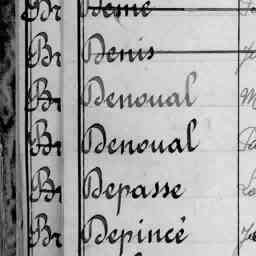 Br Deme
Br Denis
Br Denoual M
Br Denoual
Br Depasse
Br Depincé